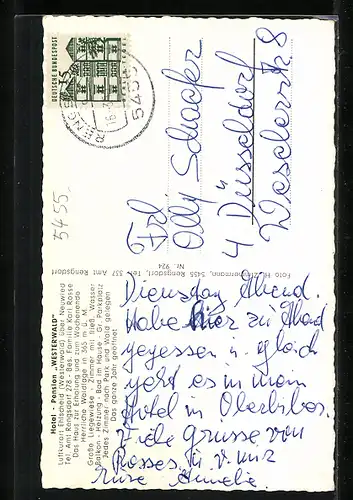 Hotel - Pension „WESTERWALD"
Luftkurort Ehlscheid (Westerwald) über Neuwied
Tel. Amt Rengsdorf 278 - Bes. Familie Karl Rosse
Das Haus zur Erholung und zum Wochenende
Herrliche Waldlage in 365 m ü. M.
Große Liegewiese - Zimmer mit fließ. Wasser
Balkon - Heizung - Bad im Hause - Gr. Parkplatz
Jedes Zimmer nach Park und Wald gelegen
Das ganze Jahr geöffnet
Dienstag Abend.
Habe hier zu Abend
gegessen u. gleich
geht es in mein
Hotel in
Viele Grüsse von
Rosses u. v. mir
eure Amelie
Foto H. Zimmermann, 5455 Rengsdorf, Tel. 337 Amt Rengsdorf
Nr. 924
5455
DEUTSCHE BUNDESPOST
15
5455
Frl
Olly Schaefer
4 Düsseldorf
8